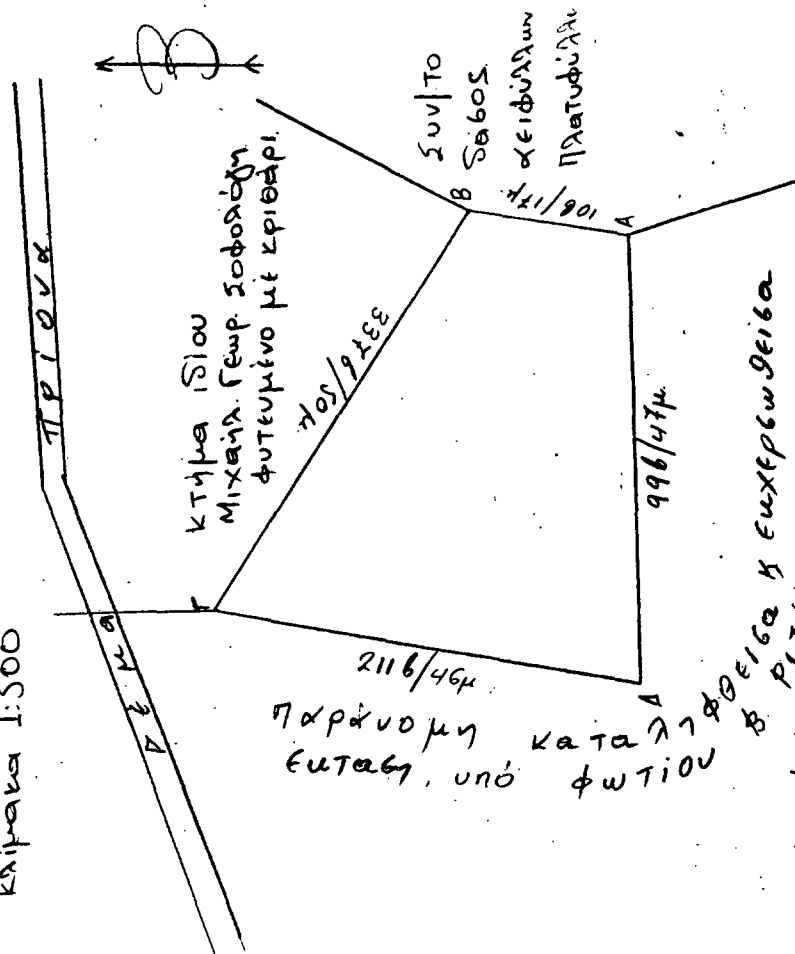 Κλίμακα 1:500
ΠΡΙΟΝΑ
ΡΕΜΑ
Β
Κτήμα ιδίου
Μιχαήλ. Γεωρ. Σοφολόγη
φυτευμένο με κριθάρι.
Συν/το
δάσος
αειφύλλων
Πλατυφύλλ
Β
10σ/17μ
Α
337σ/50μ
Γ
99σ/47μ
211σ/46μ
Δ
Παράνομη καταληφθείσα κ εκχερσωθείσα
έκταση, υπό φωτίου Β.